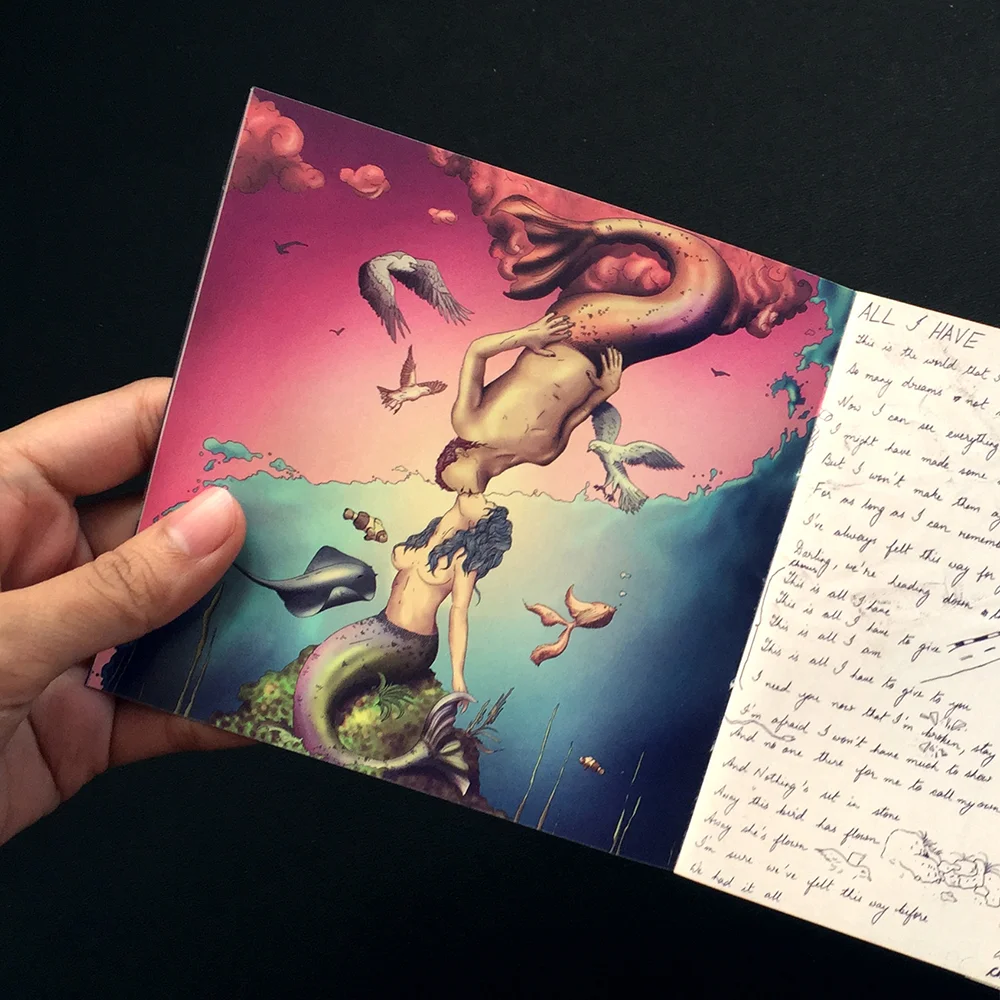 ALL I HAVE
This is the world that
So many dreams not
Now I can see everything
I might have made some
But I won't make them
For as long as I can remember
I've always felt this way for
Darling, we're heading down a
(chorus)
This is all I have
This is all I have to give
This is all I am
This is all I have to give to you
I need you now that I'm broken, stay
I'm afraid I won't have much to show
And no one there for me to call my own
And Nothing's set in stone
Away this bird has flown
Away she's flown
I'm sure we've felt this way before
We had it all